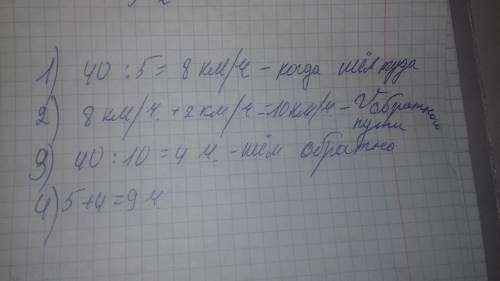 1) 40 : 5 = 8 км/ч - когда шёл куда
2) 8 км/ч. + 2 км/ч = 10 км/ч. - V обратного
пути
3) 40 : 10 = 4 ч. - шём обратно
4) 5 + 4 = 9 ч